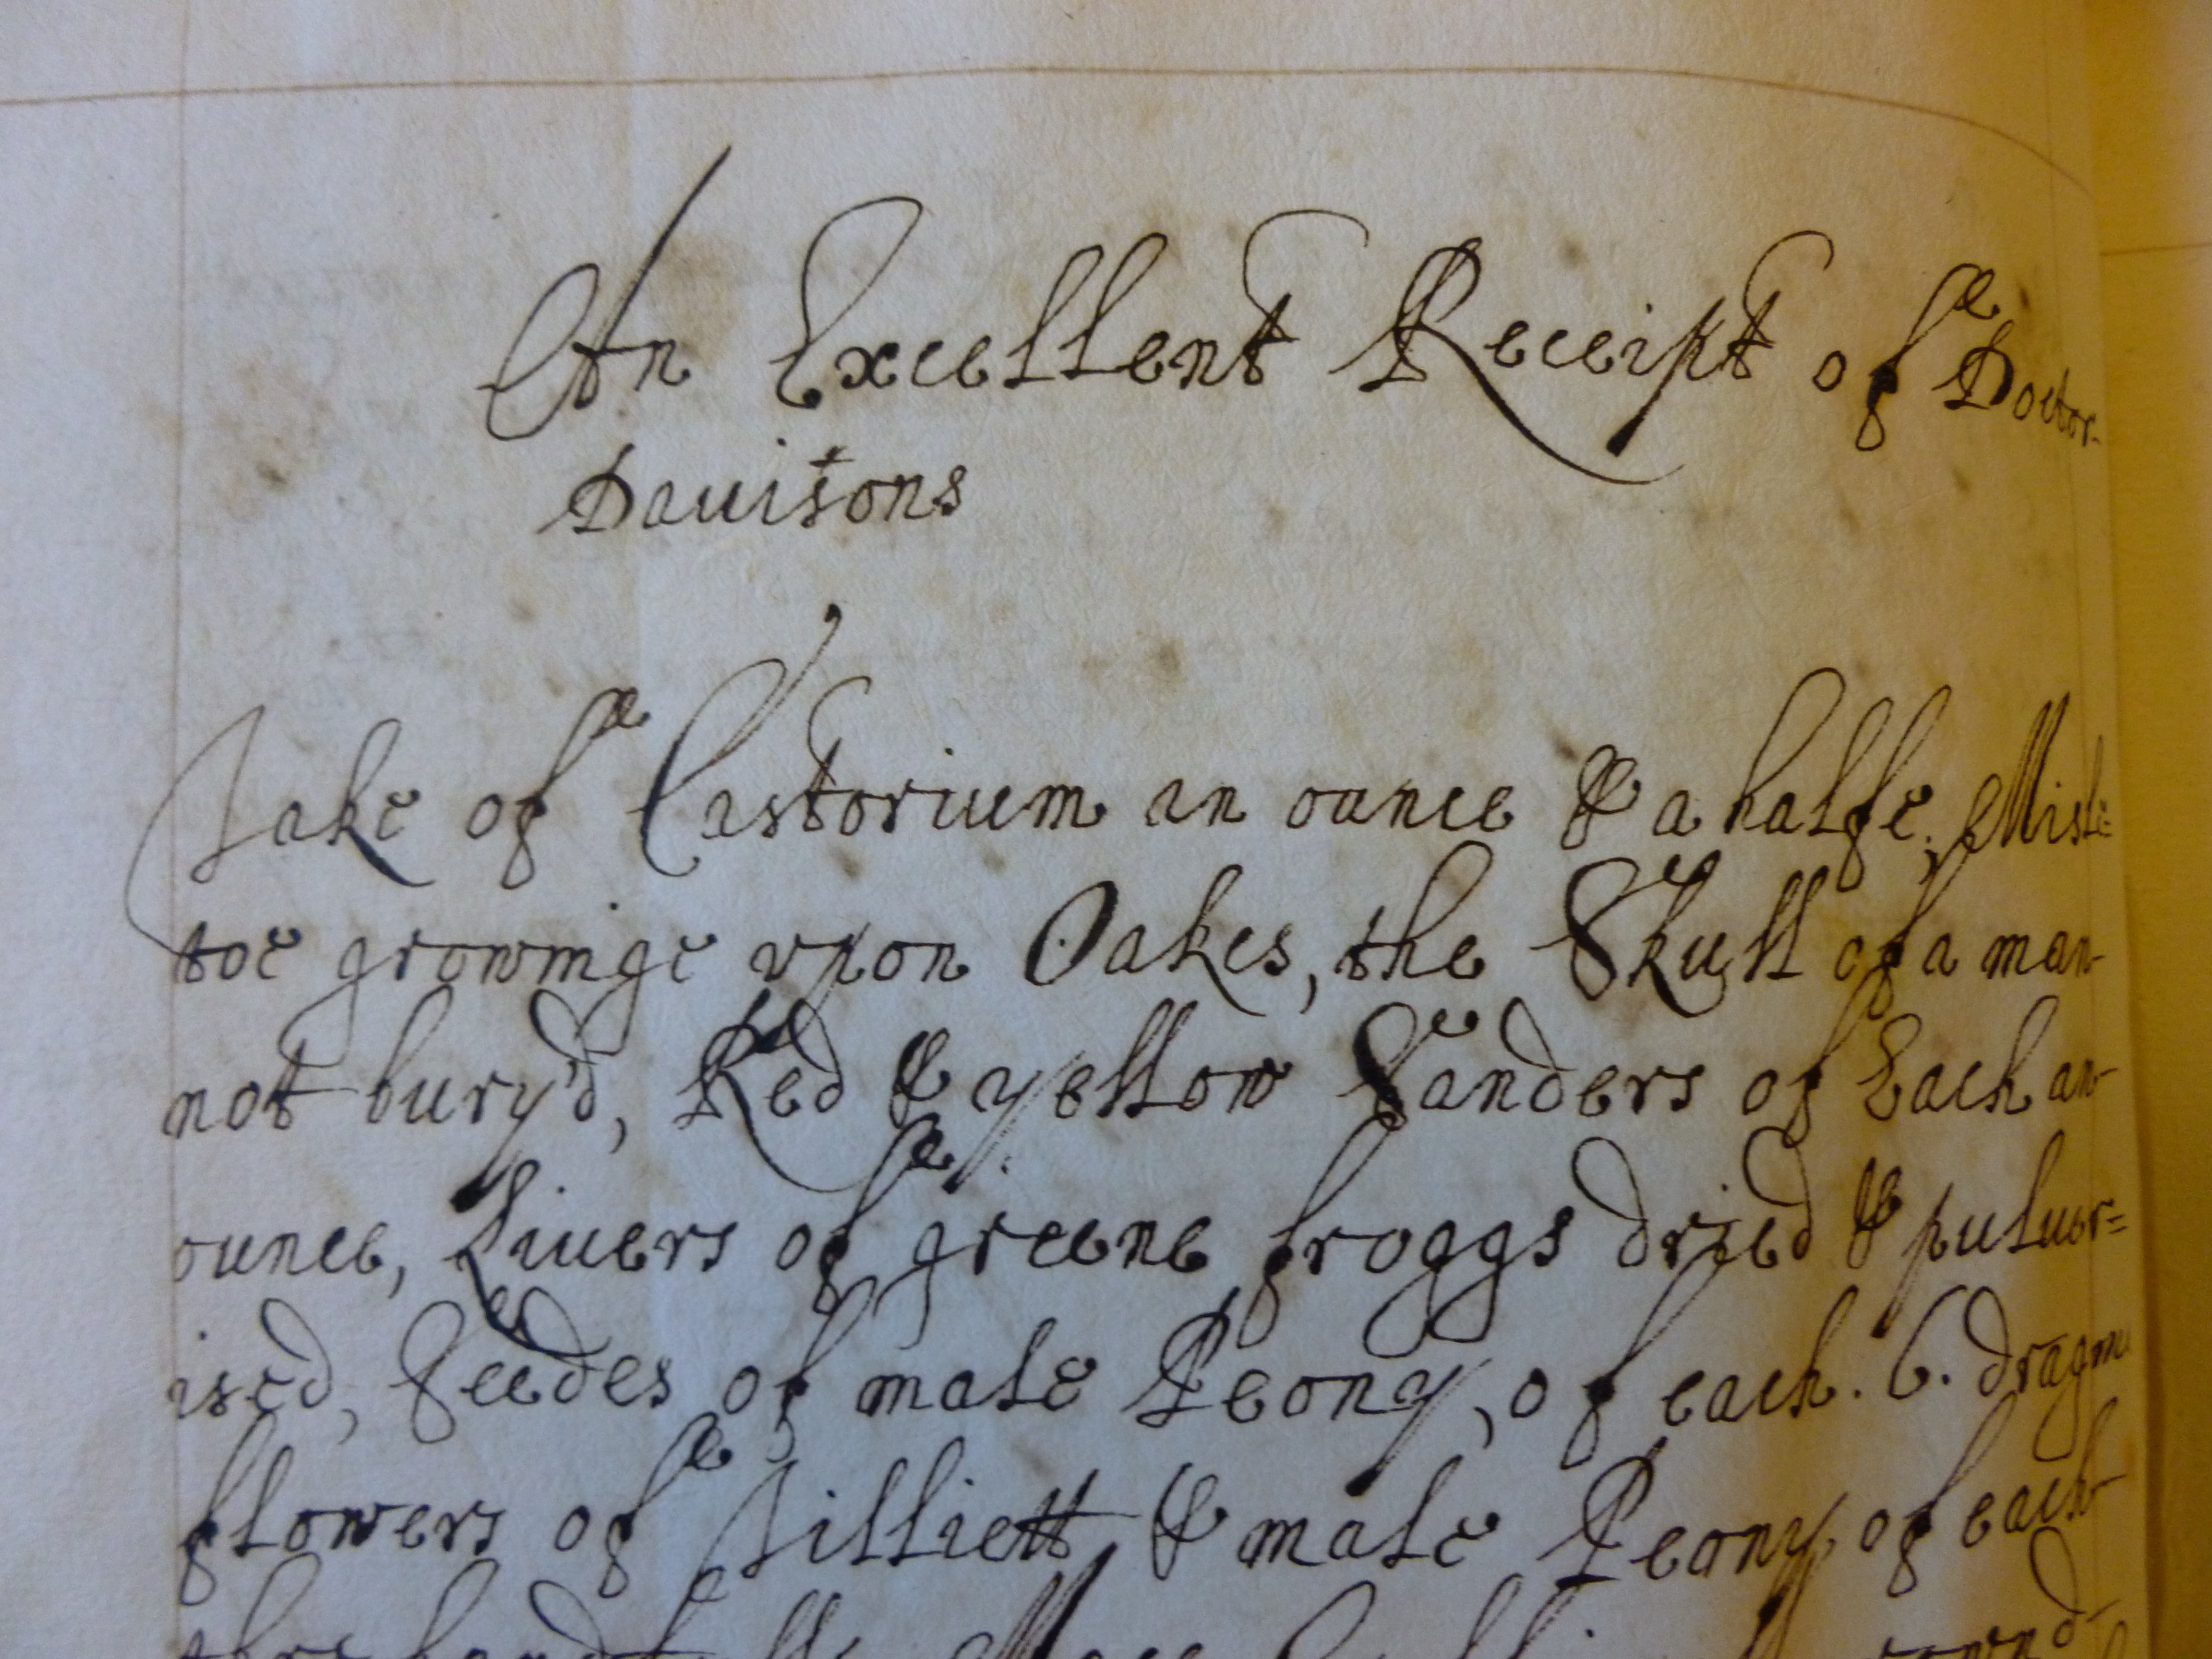 An Excellent Receipt of Doctor
Dauisons
Take of Castorium an ounce & a halfe, Misle=
toe growinge vpon Oakes, the Skull of a man
not bury'd, Red & yellow Sanders of Each an
ounce, Liuers of greene froggs dried & puluer=
ised, Seedes of male Peony, of each. 6. dragm
flowers of Tilliett & male Peony, of each